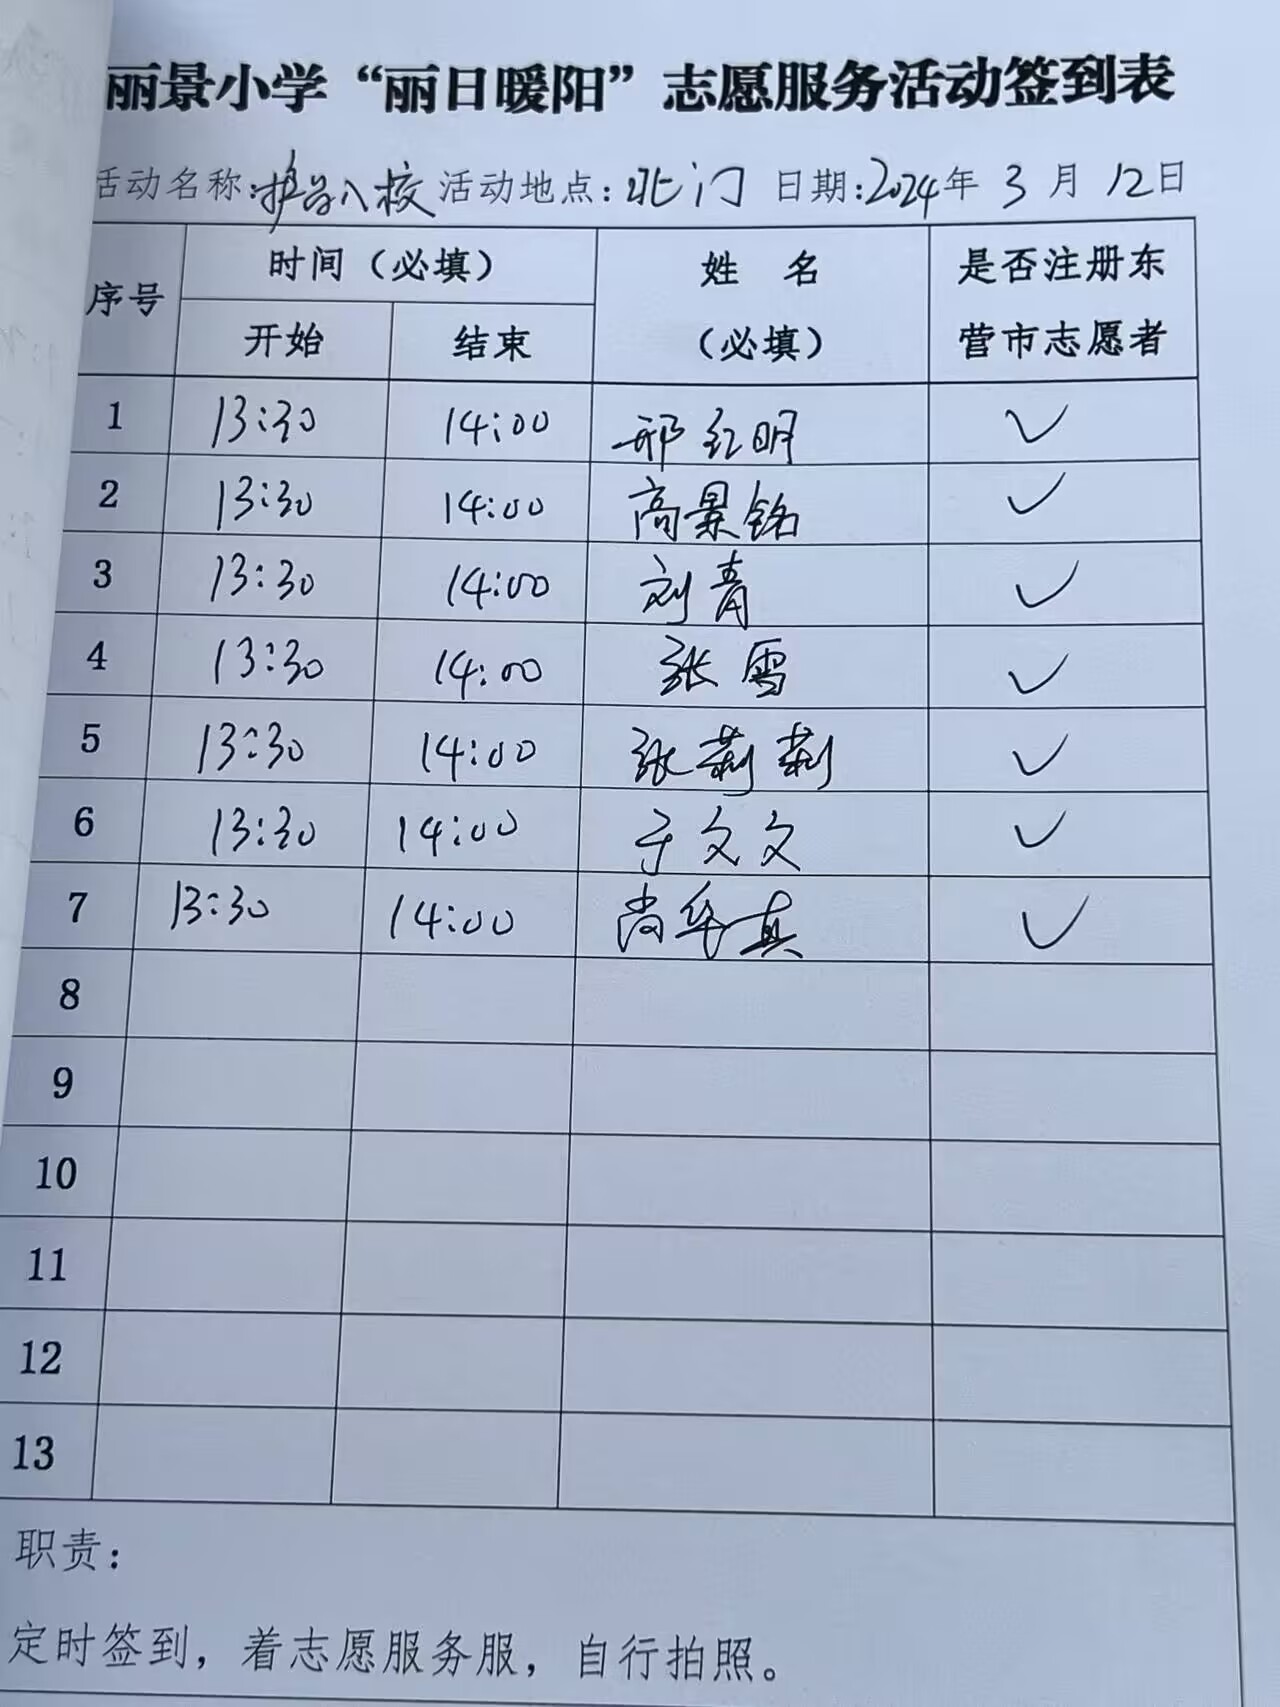 丽景小学“丽日暖阳”志愿服务活动签到表
活动名称:护学入校 活动地点:北门 日期:2024年 3 月 12日
序号 时间（必填） 姓 名（必填） 是否注册东营市志愿者
开始 结束
1 13:30 14:00 邢红明 ✓
2 13:30 14:00 高景铭 ✓
3 13:30 14:00 刘青 ✓
4 13:30 14:00 张雪 ✓
5 13:30 14:00 张莉莉 ✓
6 13:30 14:00 于文文 ✓
7 13:30 14:00 尚华真 ✓
8
9
10
11
12
13
职责：
定时签到，着志愿服务服，自行拍照。